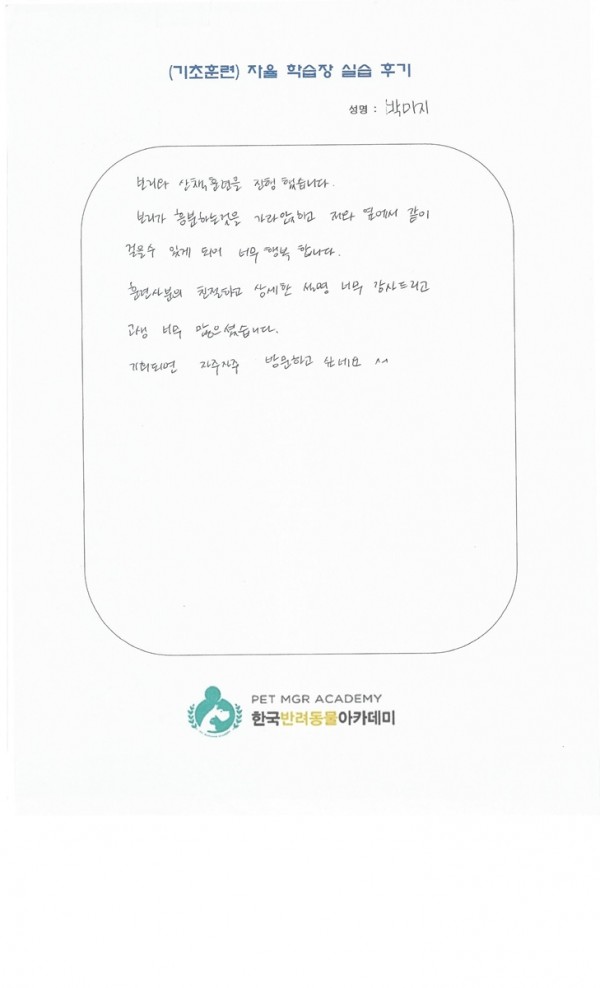 (기초훈련) 자율 학습장 실습 후기
성명 : 박미지
보리와 산책훈련을 진행 했습니다.
보리가 흥분하는것을 가라앉하고 저와 옆에서 같이
걸을수 있게 되어 너무 행복 합니다.
훈련사분의 친절하고 상세한 설명 너무 감사드리고
고생 너무 많으셨습니다.
기회되면 자주자주 방문하고 싶네요 ^^
PET MGR ACADEMY
한국반려동물아카데미